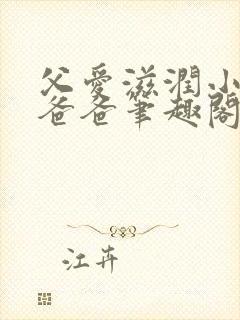 父愛滋潤小
爸爸筆趣閣
江卉